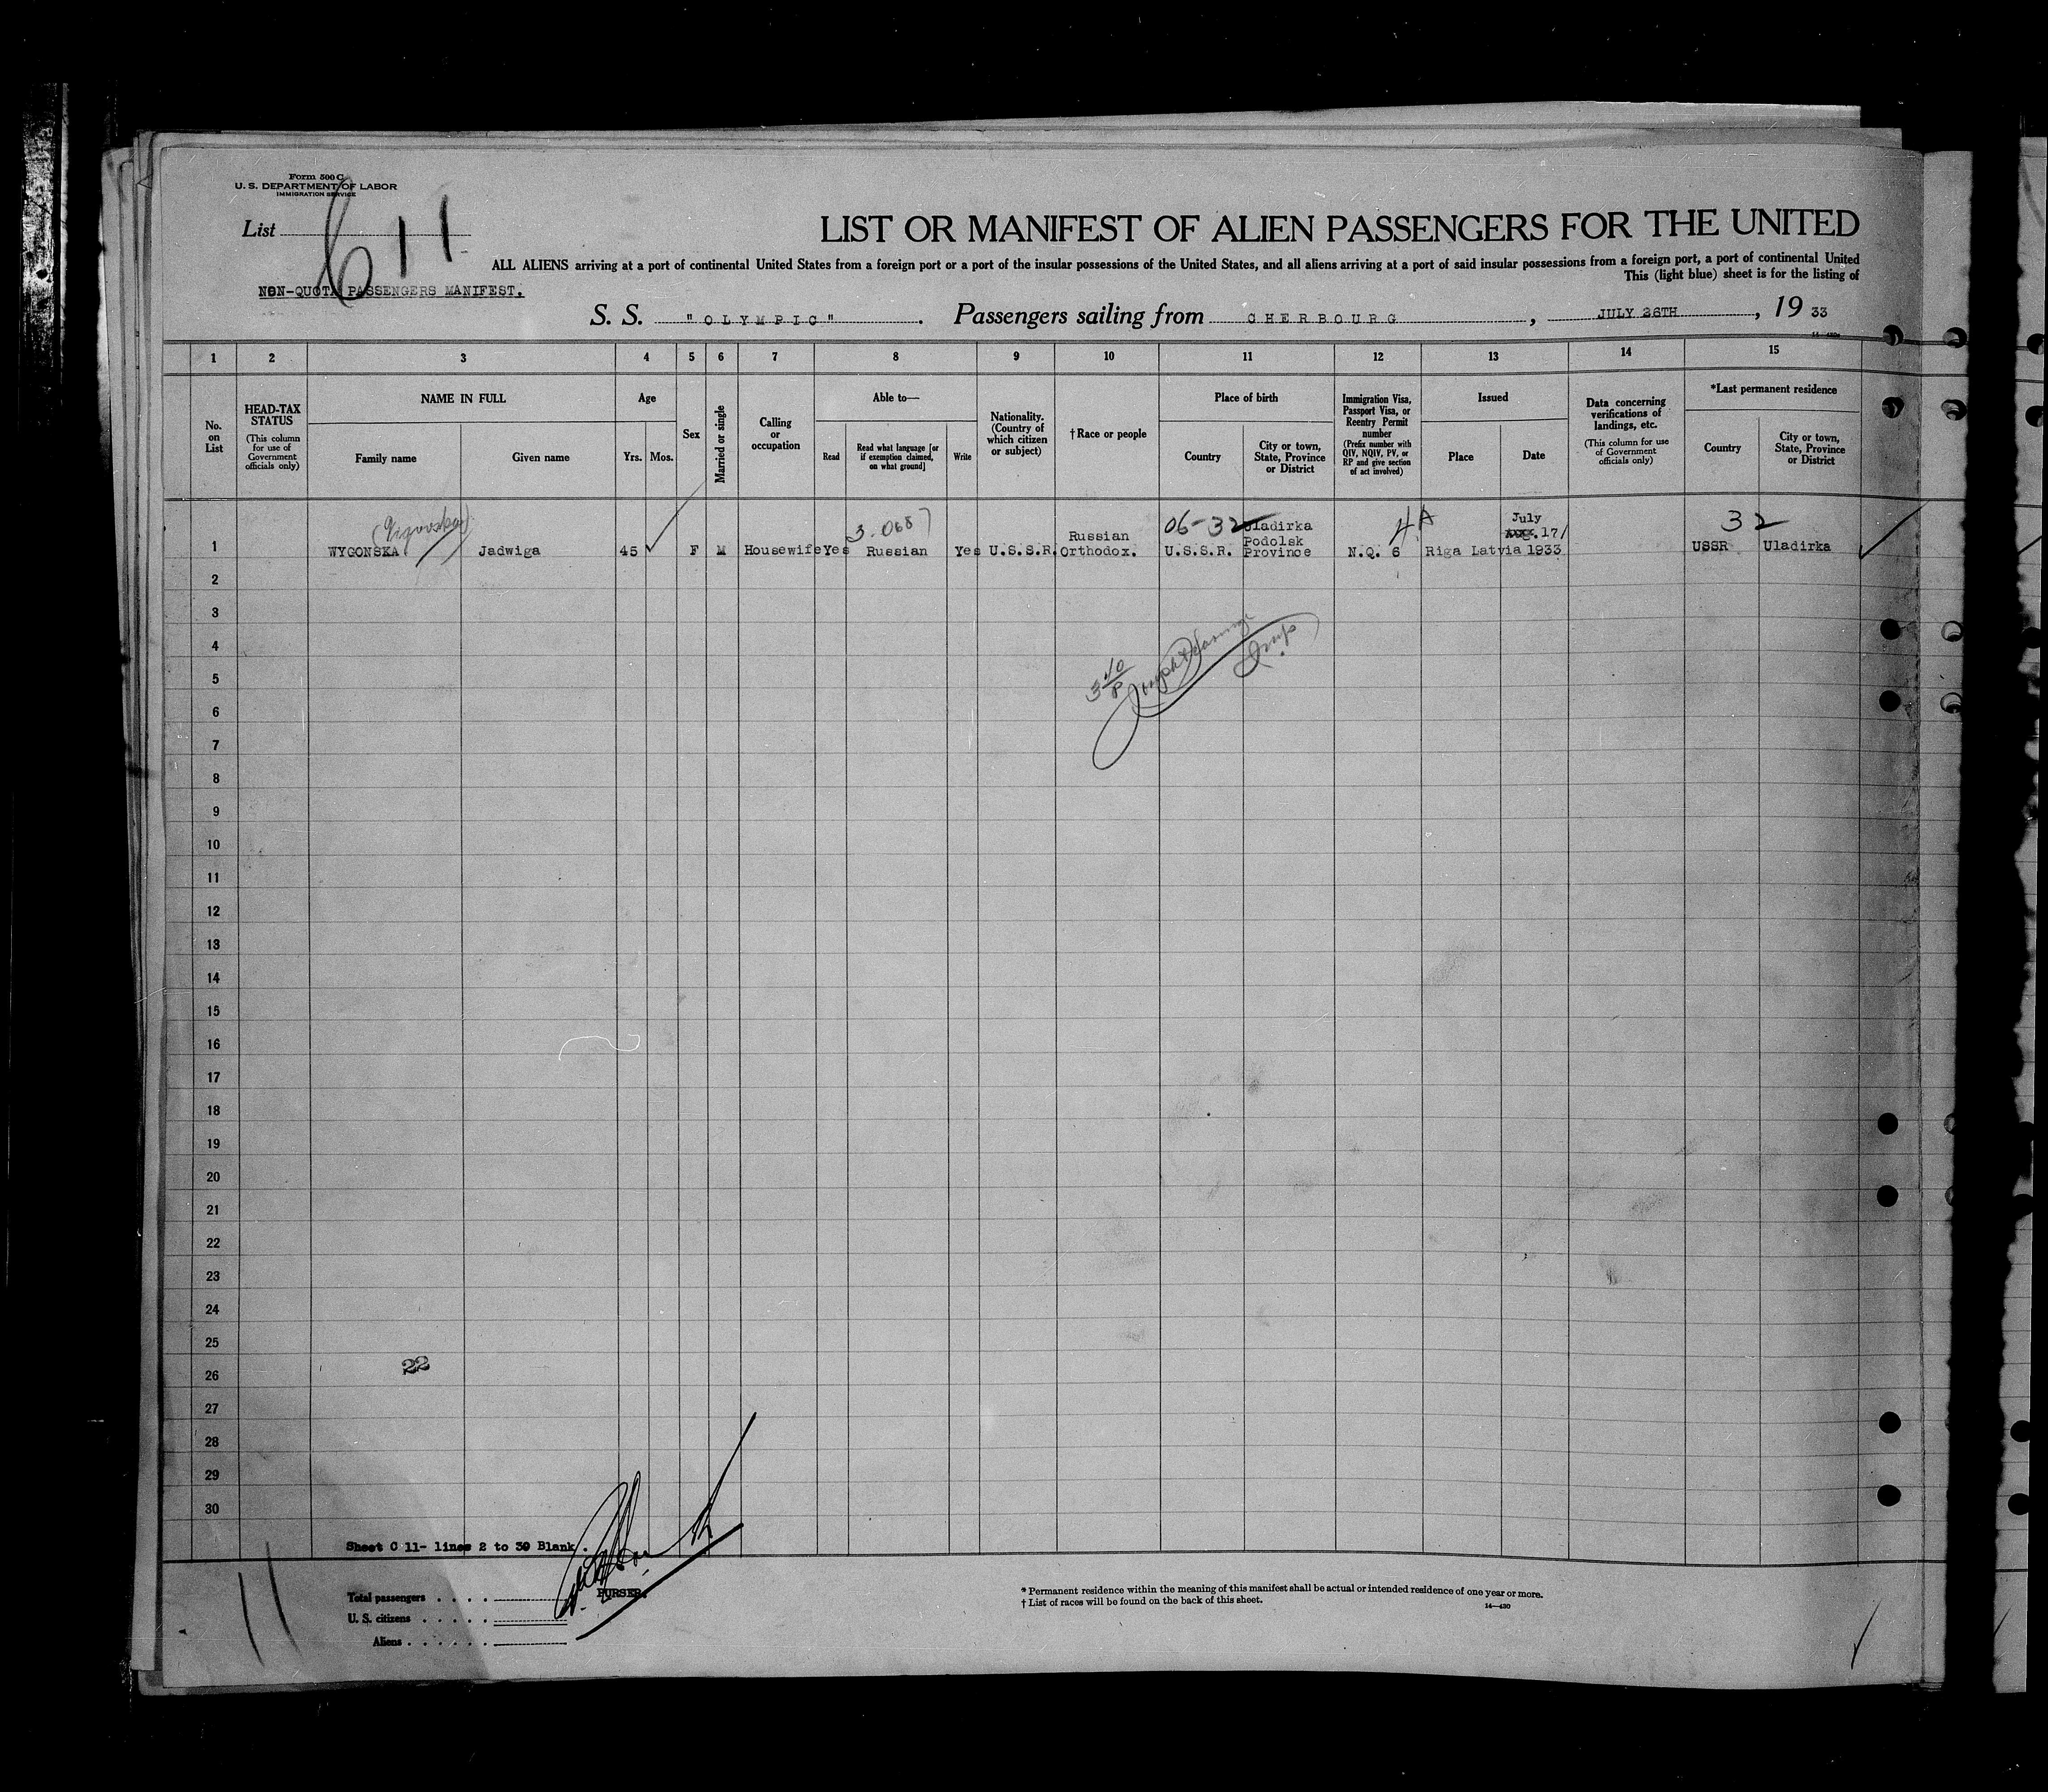 Form 500 C
U. S. DEPARTMENT OF LABOR
IMMIGRATION SERVICE
List
C 11
LIST OR MANIFEST OF ALIEN PASSENGERS FOR THE UNITED
ALL ALIENS arriving at a port of continental United States from a foreign port or a port of the insular possessions of the United States, and all aliens arriving at a port of said insular possessions from a foreign port, a port of continental United
This (light blue) sheet is for the listing of
NON-QUOTA PASSENGERS MANIFEST.
S. S. "OLYMPIC". Passengers sailing from CHERBOURG, JULY 26TH, 19 33
1 2 3 4 5 6 7 8 9 10 11 12 13 14 15
No. on List
HEAD-TAX STATUS
(This column for use of Government officials only)
NAME IN FULL
Family name
Given name
Age
Yrs. Mos.
Sex
Married or single
Calling or occupation
Able to—
Read
Read what language [or if exemption claimed, on what ground]
Write
Nationality. (Country of which citizen or subject)
†Race or people
Place of birth
Country
City or town, State, Province or District
Immigration Visa, Passport Visa, or Reentry Permit number
(Prefix number with QIV, NQIV, PV, or RP and give section of act involved)
Issued
Place
Date
Data concerning verifications of landings, etc.
(This column for use of Government officials only)
*Last permanent residence
Country
City or town, State, Province or District
3-068
06-32
4A
July
32
Russian
Uladirka
Aug. 17/
Podolsk
1 WYGONSKA Jadwiga 45 F M Housewife Yes Russian Yes U.S.S.R. Orthodox. U.S.S.R. Province N.Q. 6 Riga Latvia 1933 USSR Uladirka
2
3
4
5
6
7
8
9
10
11
12
13
14
15
16
17
18
19
20
21
22
23
24
25
22
26
27
28
29
30
Sheet C 11- lines 2 to 30 Blank.
11
PURSER.
Total passengers
U. S. citizens
Aliens
* Permanent residence within the meaning of this manifest shall be actual or intended residence of one year or more.
† List of races will be found on the back of this sheet.
14—430